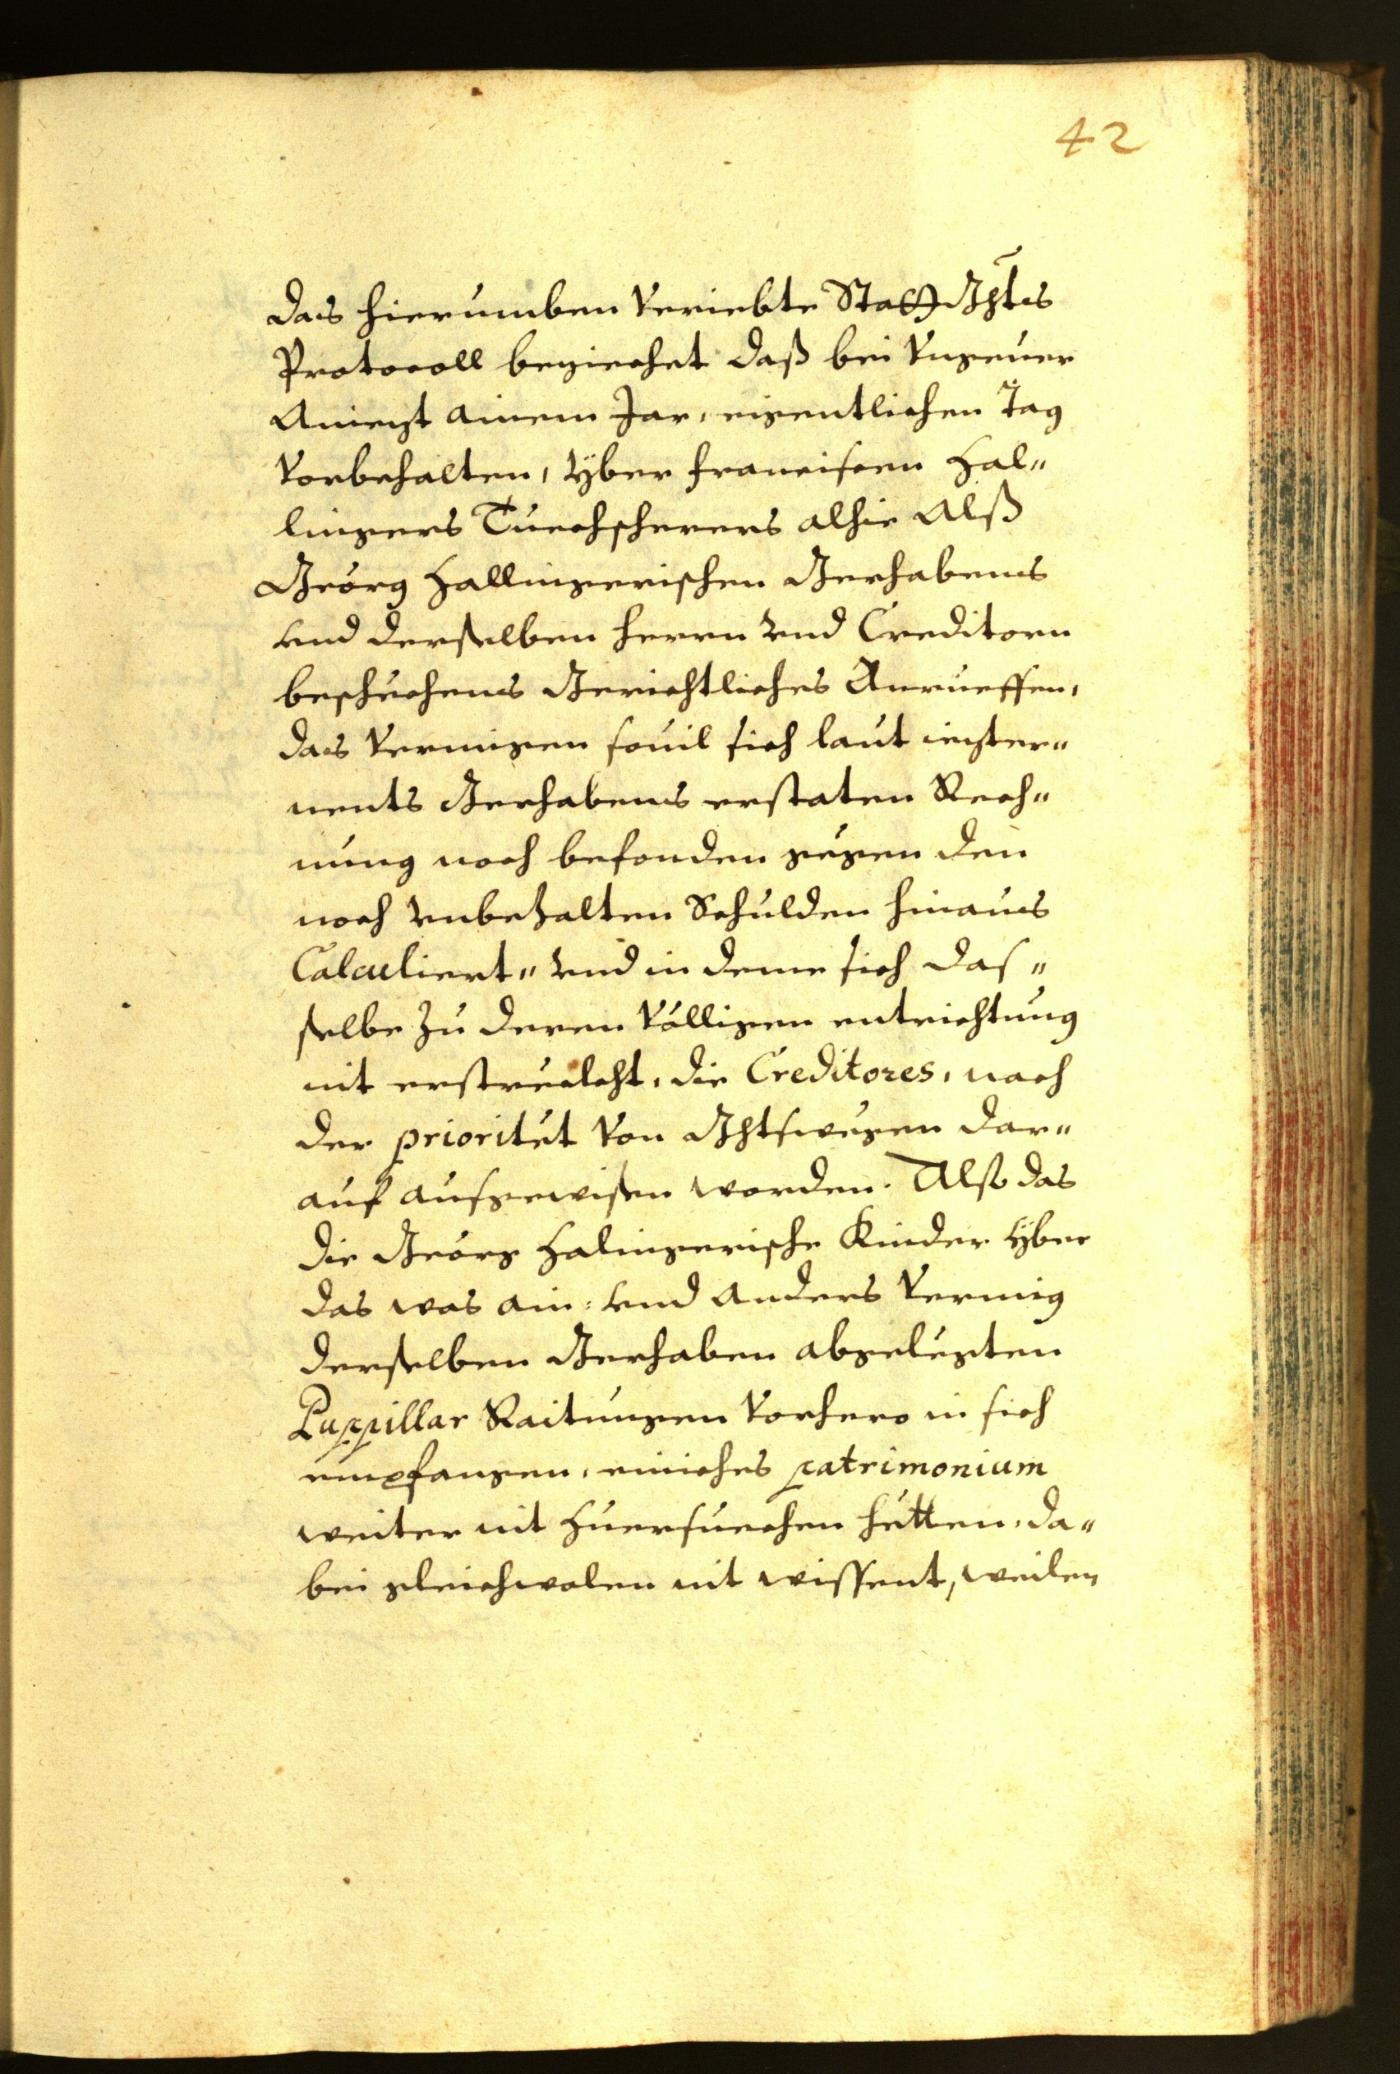 42
das hierumben Veriebte Statt Ghts
Protocoll beziechet daß bei Vngeuer
Aniezt ainem Jar, eigentlichen Tag
Vorbehalten, yber francisen Hal„
lingers Tuechscherers alhie Alß
Geörg Hallingerischen Gerhabens
vnd derselben herrn vnd Creditorn
beschehens Gerichtliches Anrueffen,
das Vermigen souil sich laut iezter„
nents Gerhabens erstaten Rech„
nung noch befonden gegen den
noch vnbezalten Schulden hinaus
Calculiert„ vnd in deme sich das„
selbe zu deren Völligen entrichtung
nit erstreckht, die Creditores, nach
der prioritet Von Ghtswegen dar„
auf aufgewisen worden. Also das
die Geörg Halingerische Kinder yber
das was ain: vnd anders Vermig
derselben Gerhaben abgelegten
Puppillar Raitungen Vorhero in sich
empfangen, einiches patrimonium
weiter nit Zuersuechen hetten, da„
bei gleichwolen nit wissent, weilen